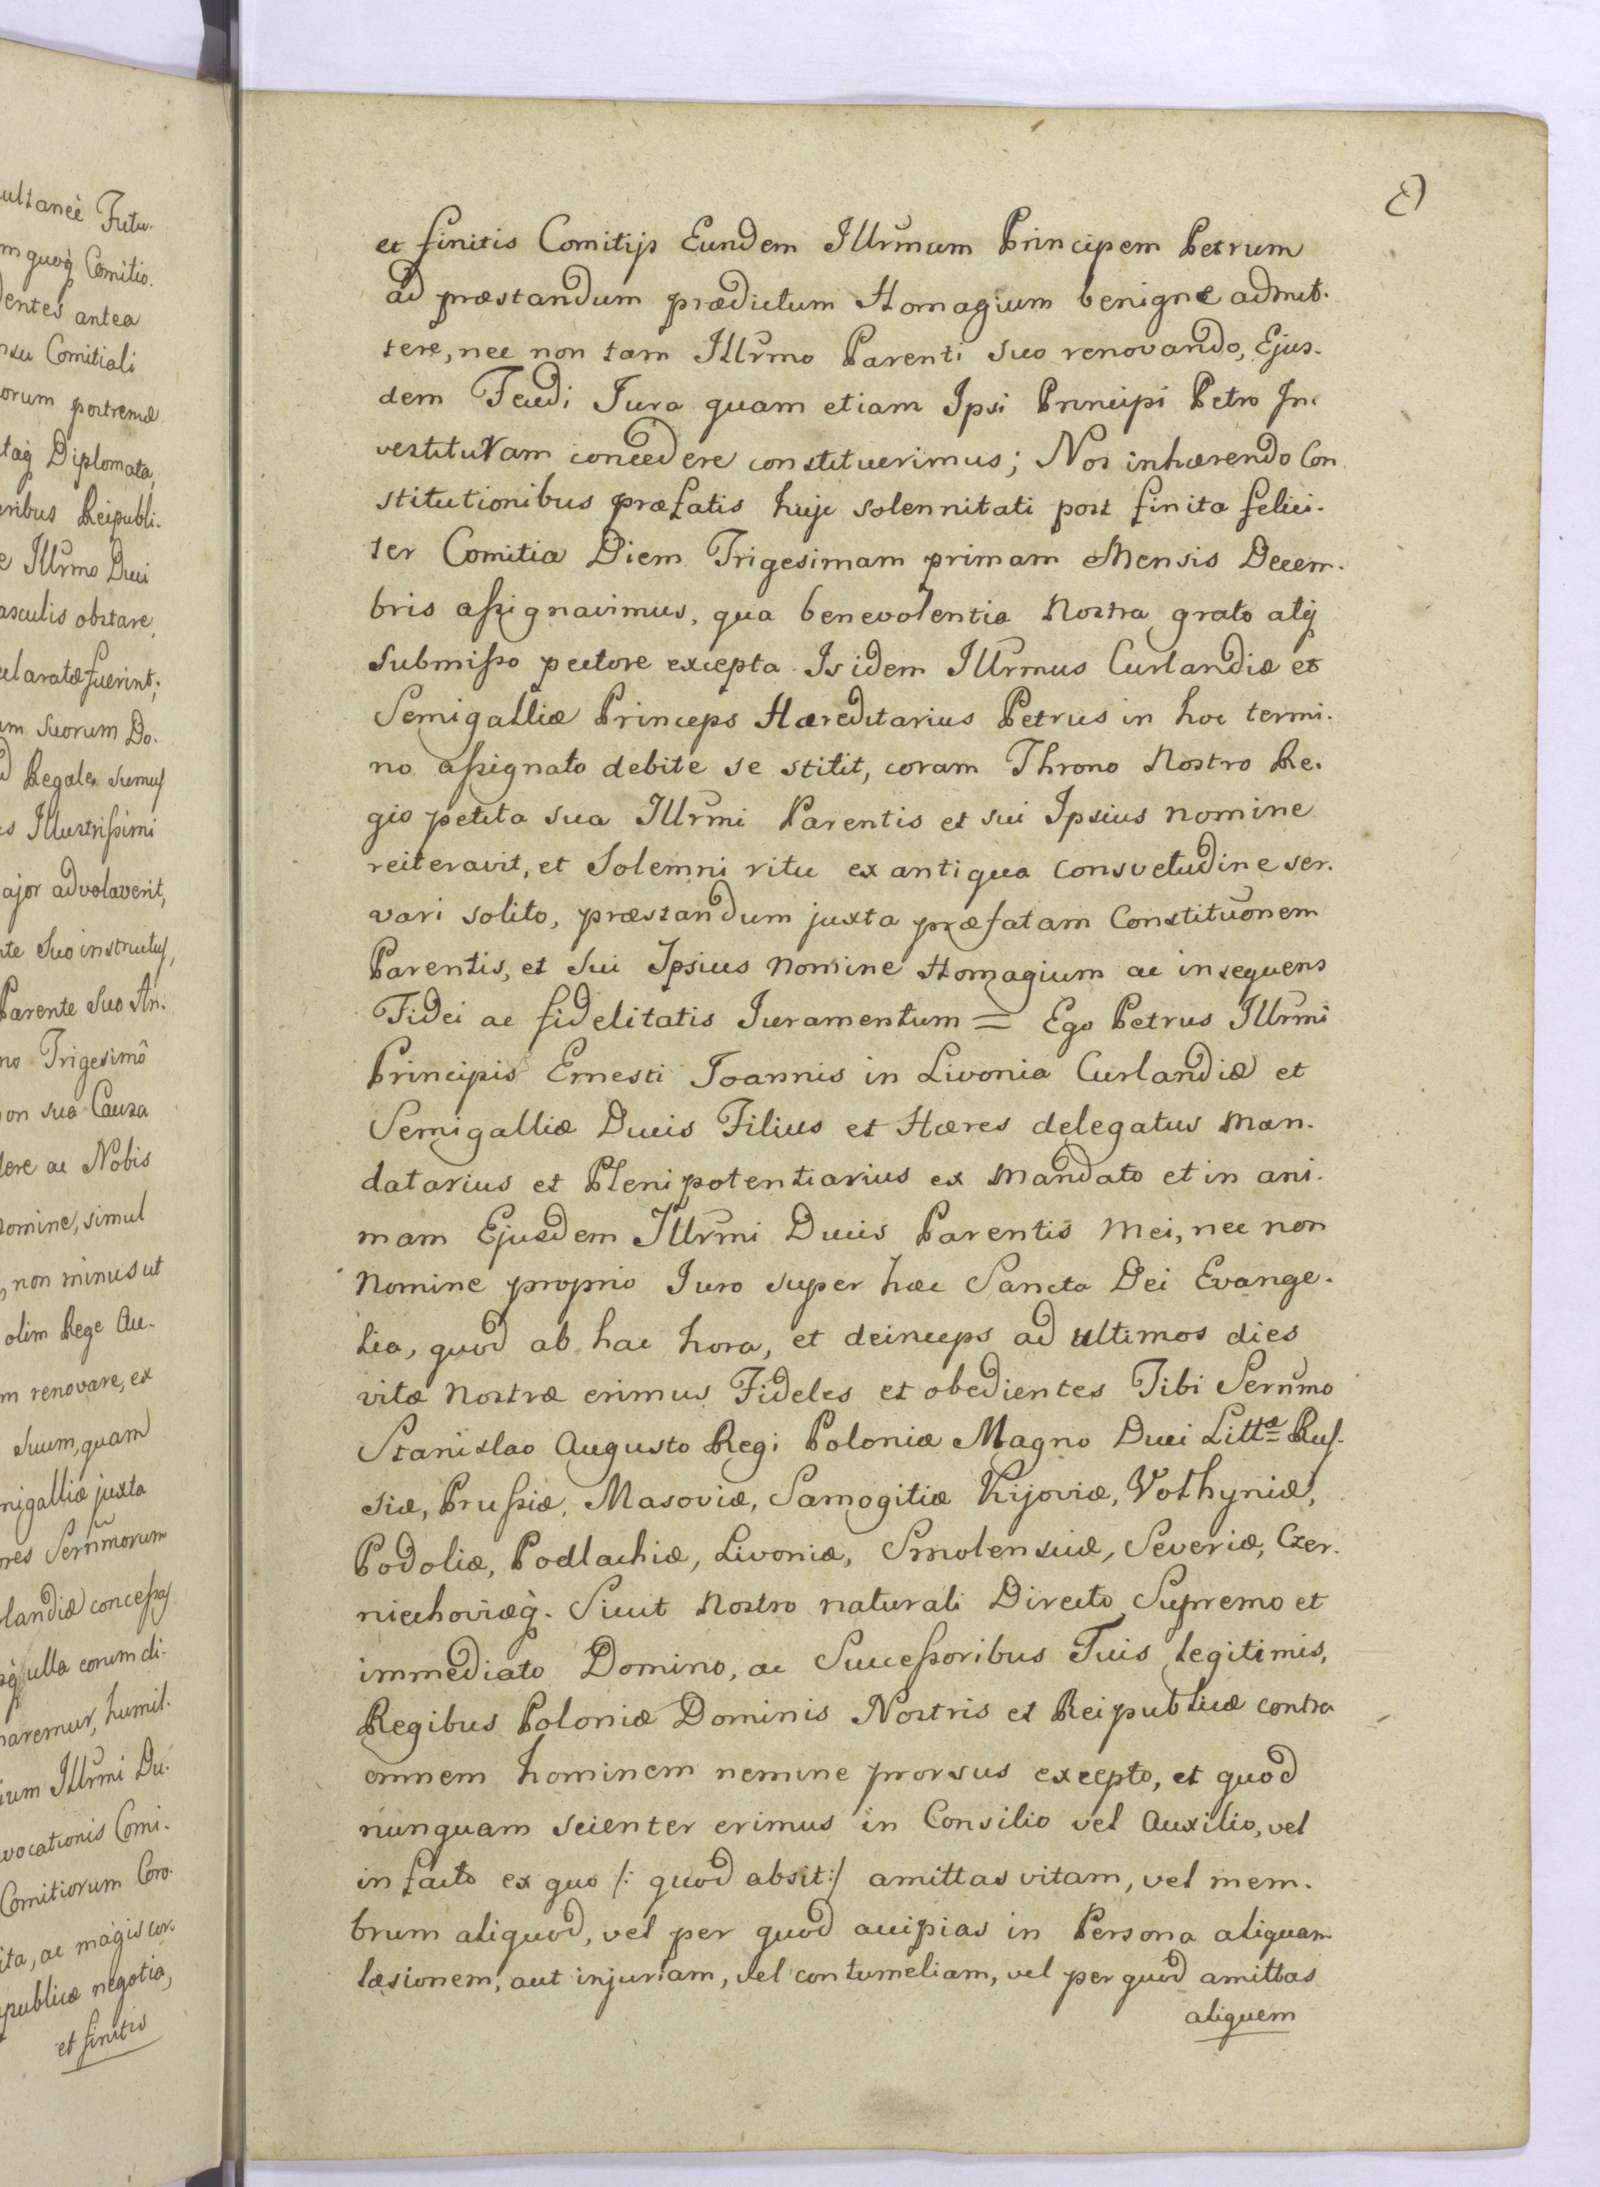 ultanee Futu.
m quoq Comitio.
dentes antea
nsu Comitiali
orum postremæ
taq Diplomata,
eribus Reipubli.
e Illrmo Duci
asculis obstare,
elaratæ fuerint;
um suorum Do.
Regales sumus
s Illustrissimi
ajor advolaverit,
nte Suo instructus,
Parente Suo An.
no Trigesimô
on sua Causa
dere ac Nobis
nomine, simul
, non minus ut
olim Rege Au.
m renovare, ex
Suum, quam
migalliæ juxta
ores Serñmorum
landiæ concessas
q ulla eorum di.
naremur, humil.
ium Illrmi Du.
vocationis Comi.
Comitiorum Coro.
ita, ac magis cor.
publicæ negotia,
et finitis
et finitis Comitijs Eundem Illrmum Principem Petrum
ad præstandum prædictum Homagium benigne admit.
tere, nec non tam Illrmo Parenti suo renovando, Ejus.
dem Feudi Jura quam etiam Ipsi Principi Petro In.
vestituram concedere constituerimus; Nos inhærendo Con
stitutionibus præfatis huic solennitati post finita felici.
ter Comitia Diem Trigesimam primam Mensis Decem.
bris assignavimus, qua benevolentia Nostra grato atq
submisso pectore excepta Is idem Illrmus Curlandiæ et
Semigalliæ Princeps Hæreditarius Petrus in hoc termi.
no assignato debite se stitit, coram Throno Nostro Re.
gio petita sua Illrmi Parentis et sui Ipsius nomine
reiteravit, et Solemni ritu ex antiqua consvetudine ser.
vari solito, præstandum juxta præfatam Constituonem
Parentis, et Sui Ipsius Nomine Homagium ac insequens
Fidei ac fidelitatis Juramentum = Ego Petrus Illrmi
Principis Ernesti Joannis in Livonia Curlandiæ et
Semigalliæ Ducis Filius et Hæres delegatus Man.
datarius et Plenipotentiarius ex Mandato et in ani.
mam Ejusdem Illrmi Ducis Parentis Mei, nec non
Nomine proprio Juro super hæc Sancta Dei Evange.
lia, quod ab hac hora, et deinceps ad ultimos dies
vitæ Nostræ erimus Fideles et obedientes Tibi Serñmo
Stanislao Augusto Regi Poloniæ Magno Duci Littæ Rus.
siæ, Prussiæ, Masoviæ, Samogitiæ Kijoviæ, Volhyniæ,
Podoliæ, Podlachiæ, Livoniæ, Smolensciæ, Severiæ, Czer.
niechoviæq. Sicut Nostro naturali Directo Supremo et
immediato Domino, ac Successoribus Tuis legitimis,
Regibus Poloniæ Dominis Nostris et Reipublicæ contra
omnem hominem nemine prorsus excepto, et quod
nunquam scienter erimus in Consilio vel Auxilio, vel
in facto ex quo /: quod absit:/ amittas vitam, vel mem.
brum aliquod, vel per quod accipias in Persona aliquam
læsionem, aut injuriam, vel contumeliam, vel per quod amittas
aliquem